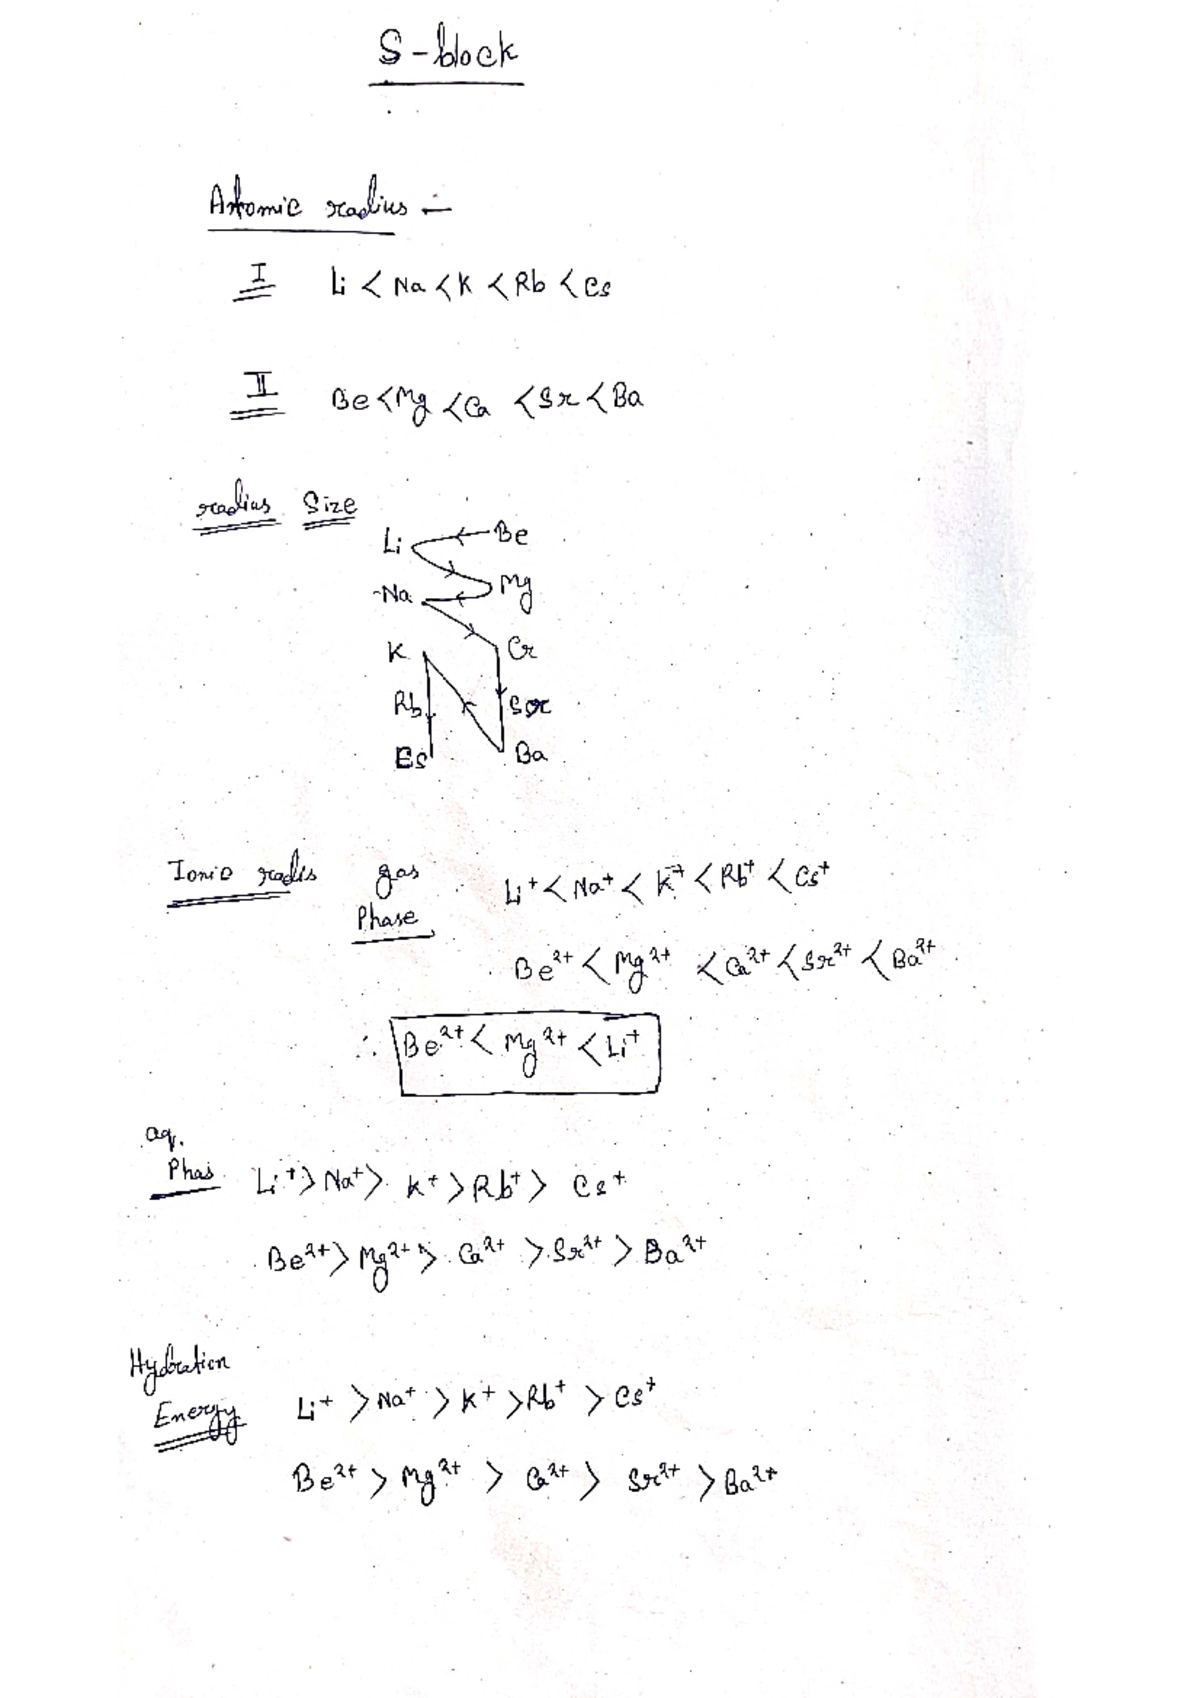 S-block
Atomic radius :-
I Li < Na < K < Rb < Cs
II Be < Mg < Ca < Sr < Ba
radius Size
Li Be
Na Mg
K Cr
Rb Sr
Es Ba
Ionic radis gas Phase Li⁺ < Na⁺ < K⁺ < Rb⁺ < Cs⁺
Be²⁺ < Mg²⁺ < Ca²⁺ < Sr²⁺ < Ba²⁺
∴ Be²⁺ < Mg²⁺ < Li⁺
aq.
Phas Li⁺ > Na⁺ > K⁺ > Rb⁺ > Cs⁺
Be²⁺ > Mg²⁺ > Ca²⁺ > Sr²⁺ > Ba²⁺
Hydration
Energy Li⁺ > Na⁺ > K⁺ > Rb⁺ > Cs⁺
Be²⁺ > Mg²⁺ > Ca²⁺ > Sr²⁺ > Ba²⁺